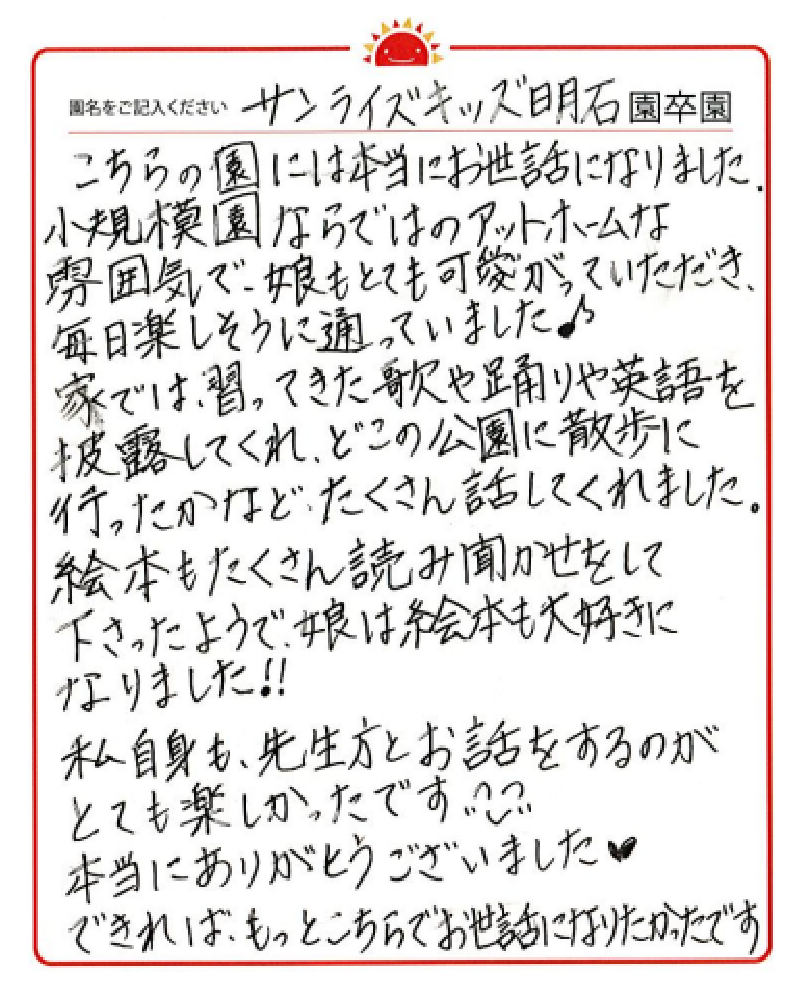 園名をご記入ください サンライズキッズ明石園卒園
こちらの園には本当にお世話になりました.
小規模園ならではのアットホームな
雰囲気で、娘もとても可愛がっていただき、
毎日楽しそうに通っていました♪
家では、習ってきた歌や踊りや英語を
披露してくれ、どこの公園に散歩に
行ったかなど、たくさん話してくれました。
絵本もたくさん読み聞かせをして
下さったようで、娘は絵本も大好きに
なりました!!
私自身も、先生方とお話をするのが
とても楽しかったです
本当にありがとうございました♥
できれば、もっとこちらでお世話になりたかったです